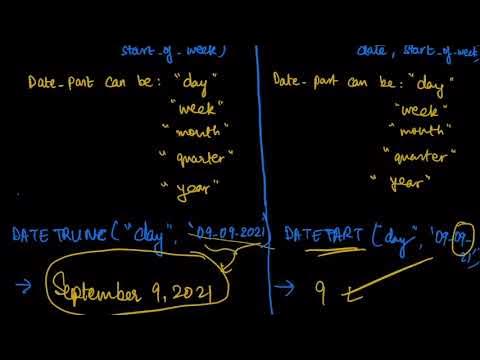 start_of_week)
Date_part can be: "day"
"week"
"month"
"quarter"
"year"
DATETRUNC("day", '09-09-2021'
→ September 9, 2021
date, start_of_week
Date_part can be: "day"
"week"
"month"
"quarter"
"year"
DATEPART ("day", '09-09-
21'
→ 9